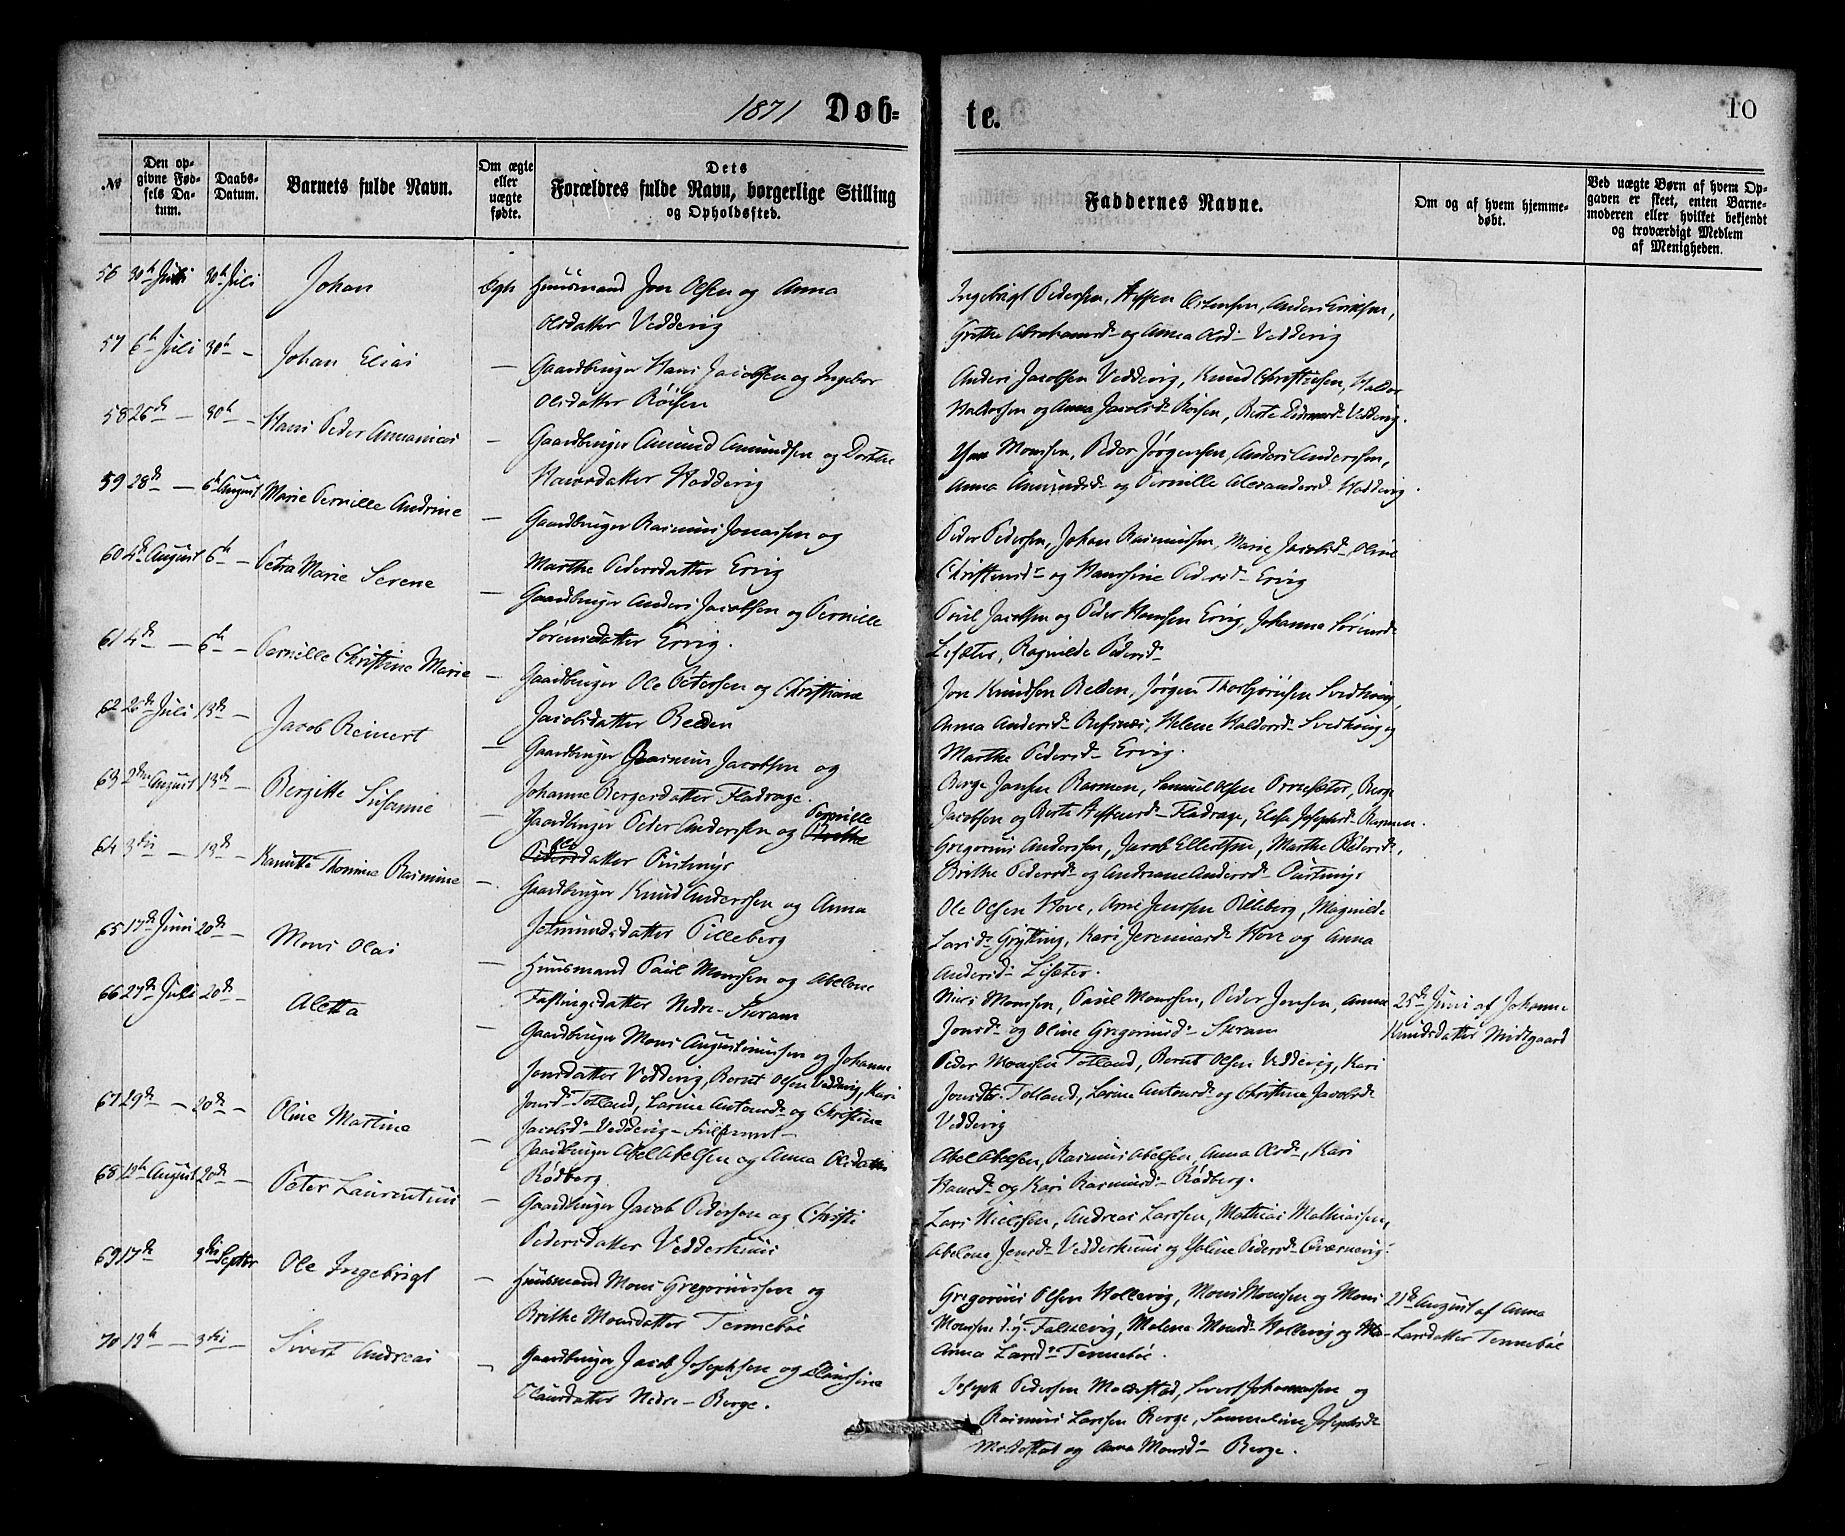 1871 Døb=
te.
10
No
Den op-
givne Fød-
sels Da-
tum.
Daabs-
Datum.
Barnets fulde Navn.
Om ægte
eller
uægte
fødte.
Dets
Forældres fulde Navn, borgerlige Stilling
og Opholdssted.
Faddernes Navne.
Om og af hvem hjemme-
døbt.
Ved uægte Børn af hvem Op-
gaven er skeet, enten Barne-
moderen eller hvilket bekjendt
og troværdigt Medlem
af Menigheden.
56 30te Juli 30te Juli Johan Huusmand Jon Olsen og Anna
Olsdatter Veddevig
Ingebrigt Pedersen, Anders Eriksen,
Grethe Abrahamsd. og Anna Olsd. Veddevig
57 6te Juli 30te — Johan Elias — Gaardbruger Hans Jacobsen og Ingebor
Olsdatter Röisen
Anders Jacobsen Veddevig, Knud Christensen, Haldor
og Anna Jacobsd. Röisen, Berte Veddevig.
58 26de — 30te — Hans Peder Annanias — Gaardbruger Amund Amundsen og Dorthe
Hansdatter Haddevig
Monssen, Peder Jørgensen, Anders Anderssen,
Anna Amundsd. og Pernille Alexandersd. Haddevig.
59 28de — 6te August Marie Pernille Andrine — Gaardbruger Rasmus Jonassen og
Marthe Pedersdatter Ervig
Peder Pedersen, Johan Rasmussen, Marie Jacobsd. Oline
Christensd. og Hanssine Pedersd. Ervig
60 4de August 6te — Petra Marie Serene — Gaardbruger Anders Jacobsen og Pernille
Sørensdatter Ervig.
Poul Jacobsen og Peder Hanssen Ervig, Johanna Sørensd.
Lisæter, Ragnilde Pedersd.
61 4de — 6te — Pernille Christine Marie — Gaardbruger Ole Petersen og Christiane
Jacobsdatter Relden
Jon Knudsen Relden, Jørgen Thorbjörnsen
Anna Andersd. Helene Haldorsd. og
Marthe Pedersd. Ervig.
62 Juli 13de — Jacob Reinert — Gaardbruger Rasmus Jacobsen og
Johanne Bergersdatter Fladrage.
Berge Jansen Rasmen, Samuel Olsen Berge
Jacobsen og Berte Fladrage, Elisa Josephsd. Rasmen.
63 2den August 13de — Bergitte Susanne — Gaardbruger Peder Anderssen og Pernille
datter
Gregorius Anderssen, Jacob Ellertsen, Marthe Pedersd.,
Brithe Pedersd. og Andreane Andersd.
64 3die — 13de — Thomine Rasmine — Gaardbruger Knud Anderssen og Anna
Jetmundsdatter Pilleberg
Ole Olsen Hove, Arne Jenssen Pilleberg, Magnilde
Larsd. Grytting, Kari Jeremiasd. Hove og Anna
Andersd. Lisæter.
65 17de Juni 20de — Mons Olai — Huusmand Paul Monssen og Abelone
Fastingsdatter Nedre-Svram
Monssen, Paul Monssen, Peder Jensen, Anna
Jonsd. og Oline Gregoriusd. Svram
25de Juni af Johanne
Knudsdatter Midtgaard
66 27de Juli 20de — Aletta — Gaardbruger Mons Augustinussen og Johanne
Jonsdatter Veddevig, Bernt Olsen Veddevig, Kari
Jonsd. Totland, Larine Antonsd. og Christine
Jacobsd. Veddevig
Peder Monssen Totland, Bernt Olsen Veddevig, Kari
Jonsd. Totland, Larine Antonsd. og Christine Jacobsd.
Veddevig
67 29de — 20de — Oline Martine — Gaardbruger Abel Abelsen og Anna Olsdatter
Rødberg.
Abel Abelsen, Rasmus Abelsen, Anna Olsd., Kari
Hansd. og Kari Rasmusd. Rødberg.
68 12te August 20de — Peter Laurentius — Gaardbruger Jacob Pedersen og Christi
Pedersdatter Vedderhuus
Lars Nielssen, Andreas Larssen, Mathias Mathiassen,
Abelone Jensd. Vedderhuus og Joline Pedersd.
69 17de 3die Septbr Ole Ingebrigt — Huusmand Mons Gregoriussen og
Brithe Monsdatter Tennebøe
Gregorius Olsen Hollevig, Mons Monssen og Mons
Monssen d.y. Falkevig, Malene Monsd. Hollevig og
Anna Larsd. Tennebøe.
21de August af Anna
Larsdatter Tennebøe
70 19de — 3die — Sivert Andreas — Gaardbruger Jacob Josephsen og Claussine
Clausdatter Nedre-Berge.
Joseph Pedersen Moldestad, Sivert Johannessen og
Rasmus Larssen Berge, Sammeline Josephsd.
Moldestad og Anna Monsd. Berge.